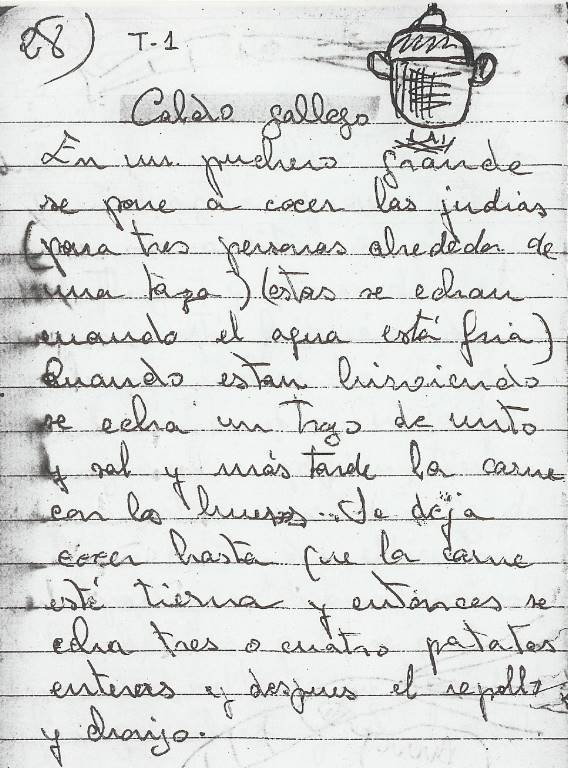 28) T-1
Caldo gallego
En un puchero grande
se pone a cocer las judias
(para tres personas alrededor de
una taza) (estas se echan
cuando el agua está fria)
Quando estan hirviendo
se echa un trozo de unto
y sal y más tarde la carne
con los huesos. Se deja
cocer hasta que la carne
esté tierna y entonces se
echa tres o cuatro patatas
enteras y despues el repollo
y chorizo.